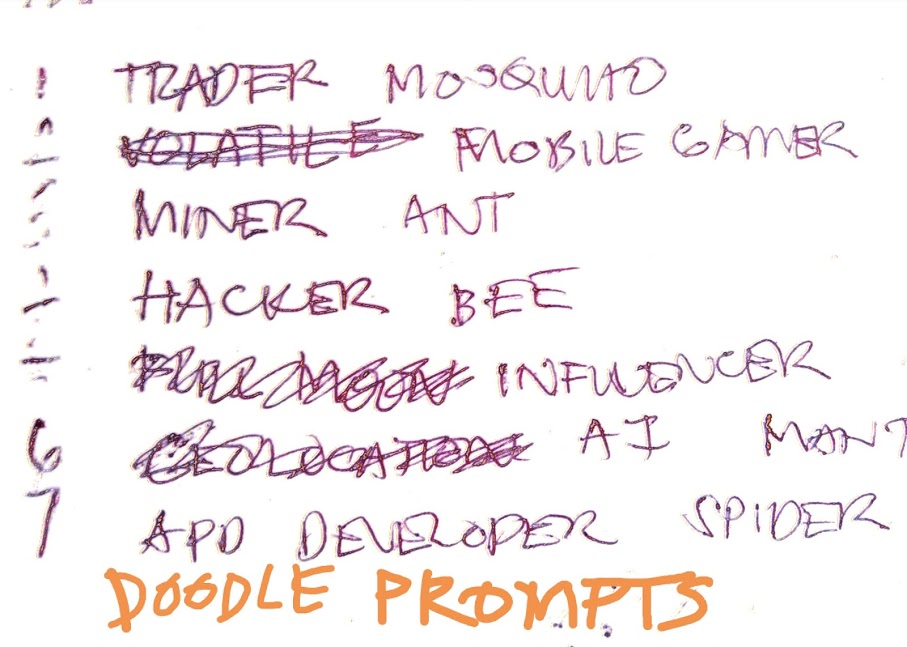 1 TRADER MOSQUITO
VOLATILE MOBILE GAMER
MINER ANT
HACKER BEE
FULL MOON INFLUENCER
6 GEOLOCATION AI MANT
7 APP DEVELOPER SPIDER
DOODLE PROMPTS